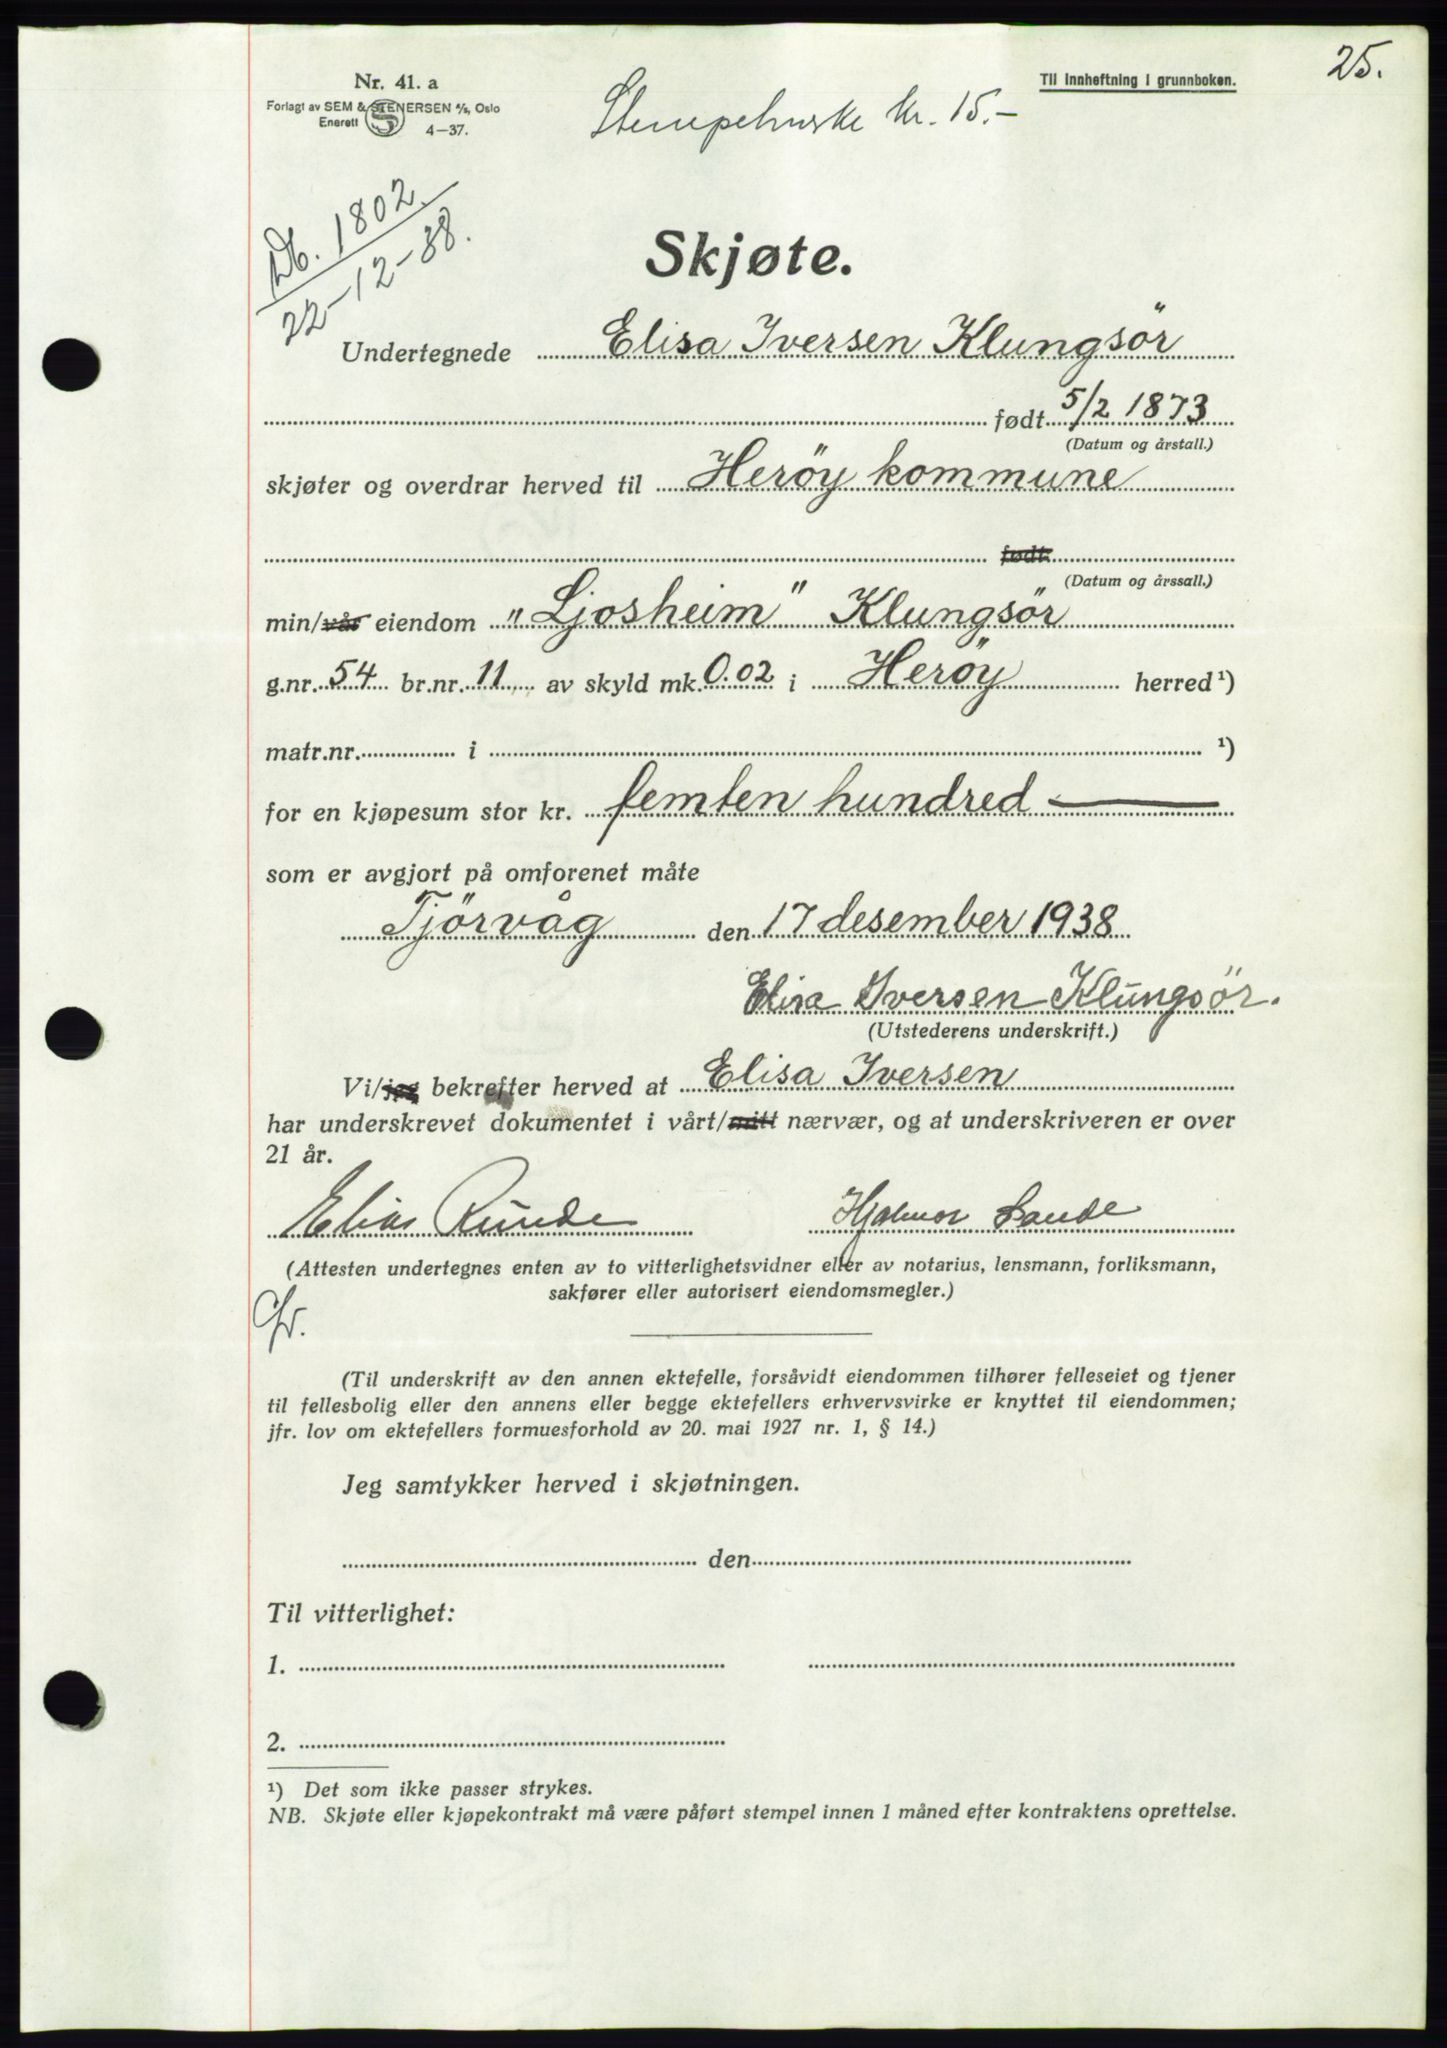 25.
Nr. 41. a
Til innheftning i grunnboken.
Forlagt av SEM & STENERSEN A/S, Oslo
Enerett S 4-37.
kr. 15.-
Db. 1802
22-12-38.
Skjøte.
Undertegnede Elisa Iversen Klungsör
født 5/2 1873
(Datum og årstall.)
skjøter og overdrar herved til Heröy kommune
født
(Datum og årssall.)
min/vår eiendom "Ljosheim" Klungsör
g.nr. 54 br.nr. 11 av skyld mk. 0.02 i Heröy herred¹)
matr.nr. i ¹)
for en kjøpesum stor kr. femten hundred
som er avgjort på omforenet måte
Tjörvåg den 17 desember 1938
Elisa Iversen Klungsör.
(Utstederens underskrift.)
Vi/jeg bekrefter herved at Elisa Iversen
har underskrevet dokumentet i vårt/mitt nærvær, og at underskriveren er over
21 år.
Elias Runde Hjalmar Sande
(Attesten undertegnes enten av to vitterlighetsvidner eller av notarius, lensmann, forliksmann,
sakfører eller autorisert eiendomsmegler.)
(Til underskrift av den annen ektefelle, forsåvidt eiendommen tilhører felleseiet og tjener
til fellesbolig eller den annens eller begge ektefellers erhvervsvirke er knyttet til eiendommen;
jfr. lov om ektefellers formuesforhold av 20. mai 1927 nr. 1, § 14.)
Jeg samtykker herved i skjøtningen.
den
Til vitterlighet:
1.
2.
¹) Det som ikke passer strykes.
NB. Skjøte eller kjøpekontrakt må være påført stempel innen 1 måned efter kontraktens oprettelse.